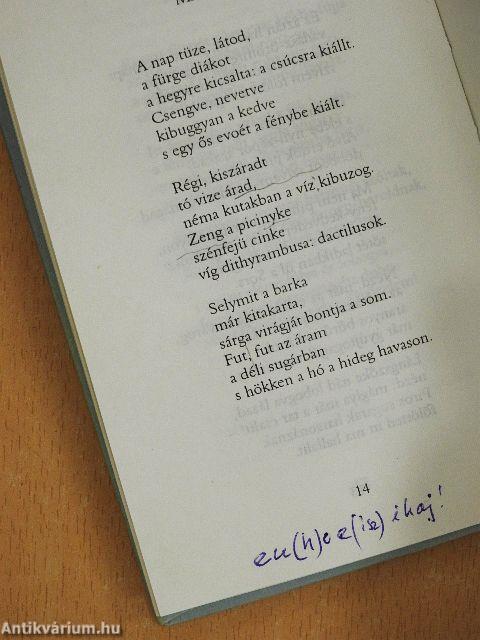 A nap tüze, látod,
a fürge diákot
a hegyre kicsalta: a csúcsra kiállt.
Csengve, nevetve
kibuggyan a kedve
s egy ős evoét a fénybe kiált.
Régi, kiszáradt
tó vize árad,
néma kutakban a víz kibuzog.
Zeng a picinyke
szénfejű cinke
víg dithyrambusa: dactilusok.
Selymit a barka
már kitakarta,
sárga virágját bontja a som.
Fut, fut az áram
a déli sugárban
s hökken a hó a hideg havason.
14
ihaj!
Antikvárium.hu